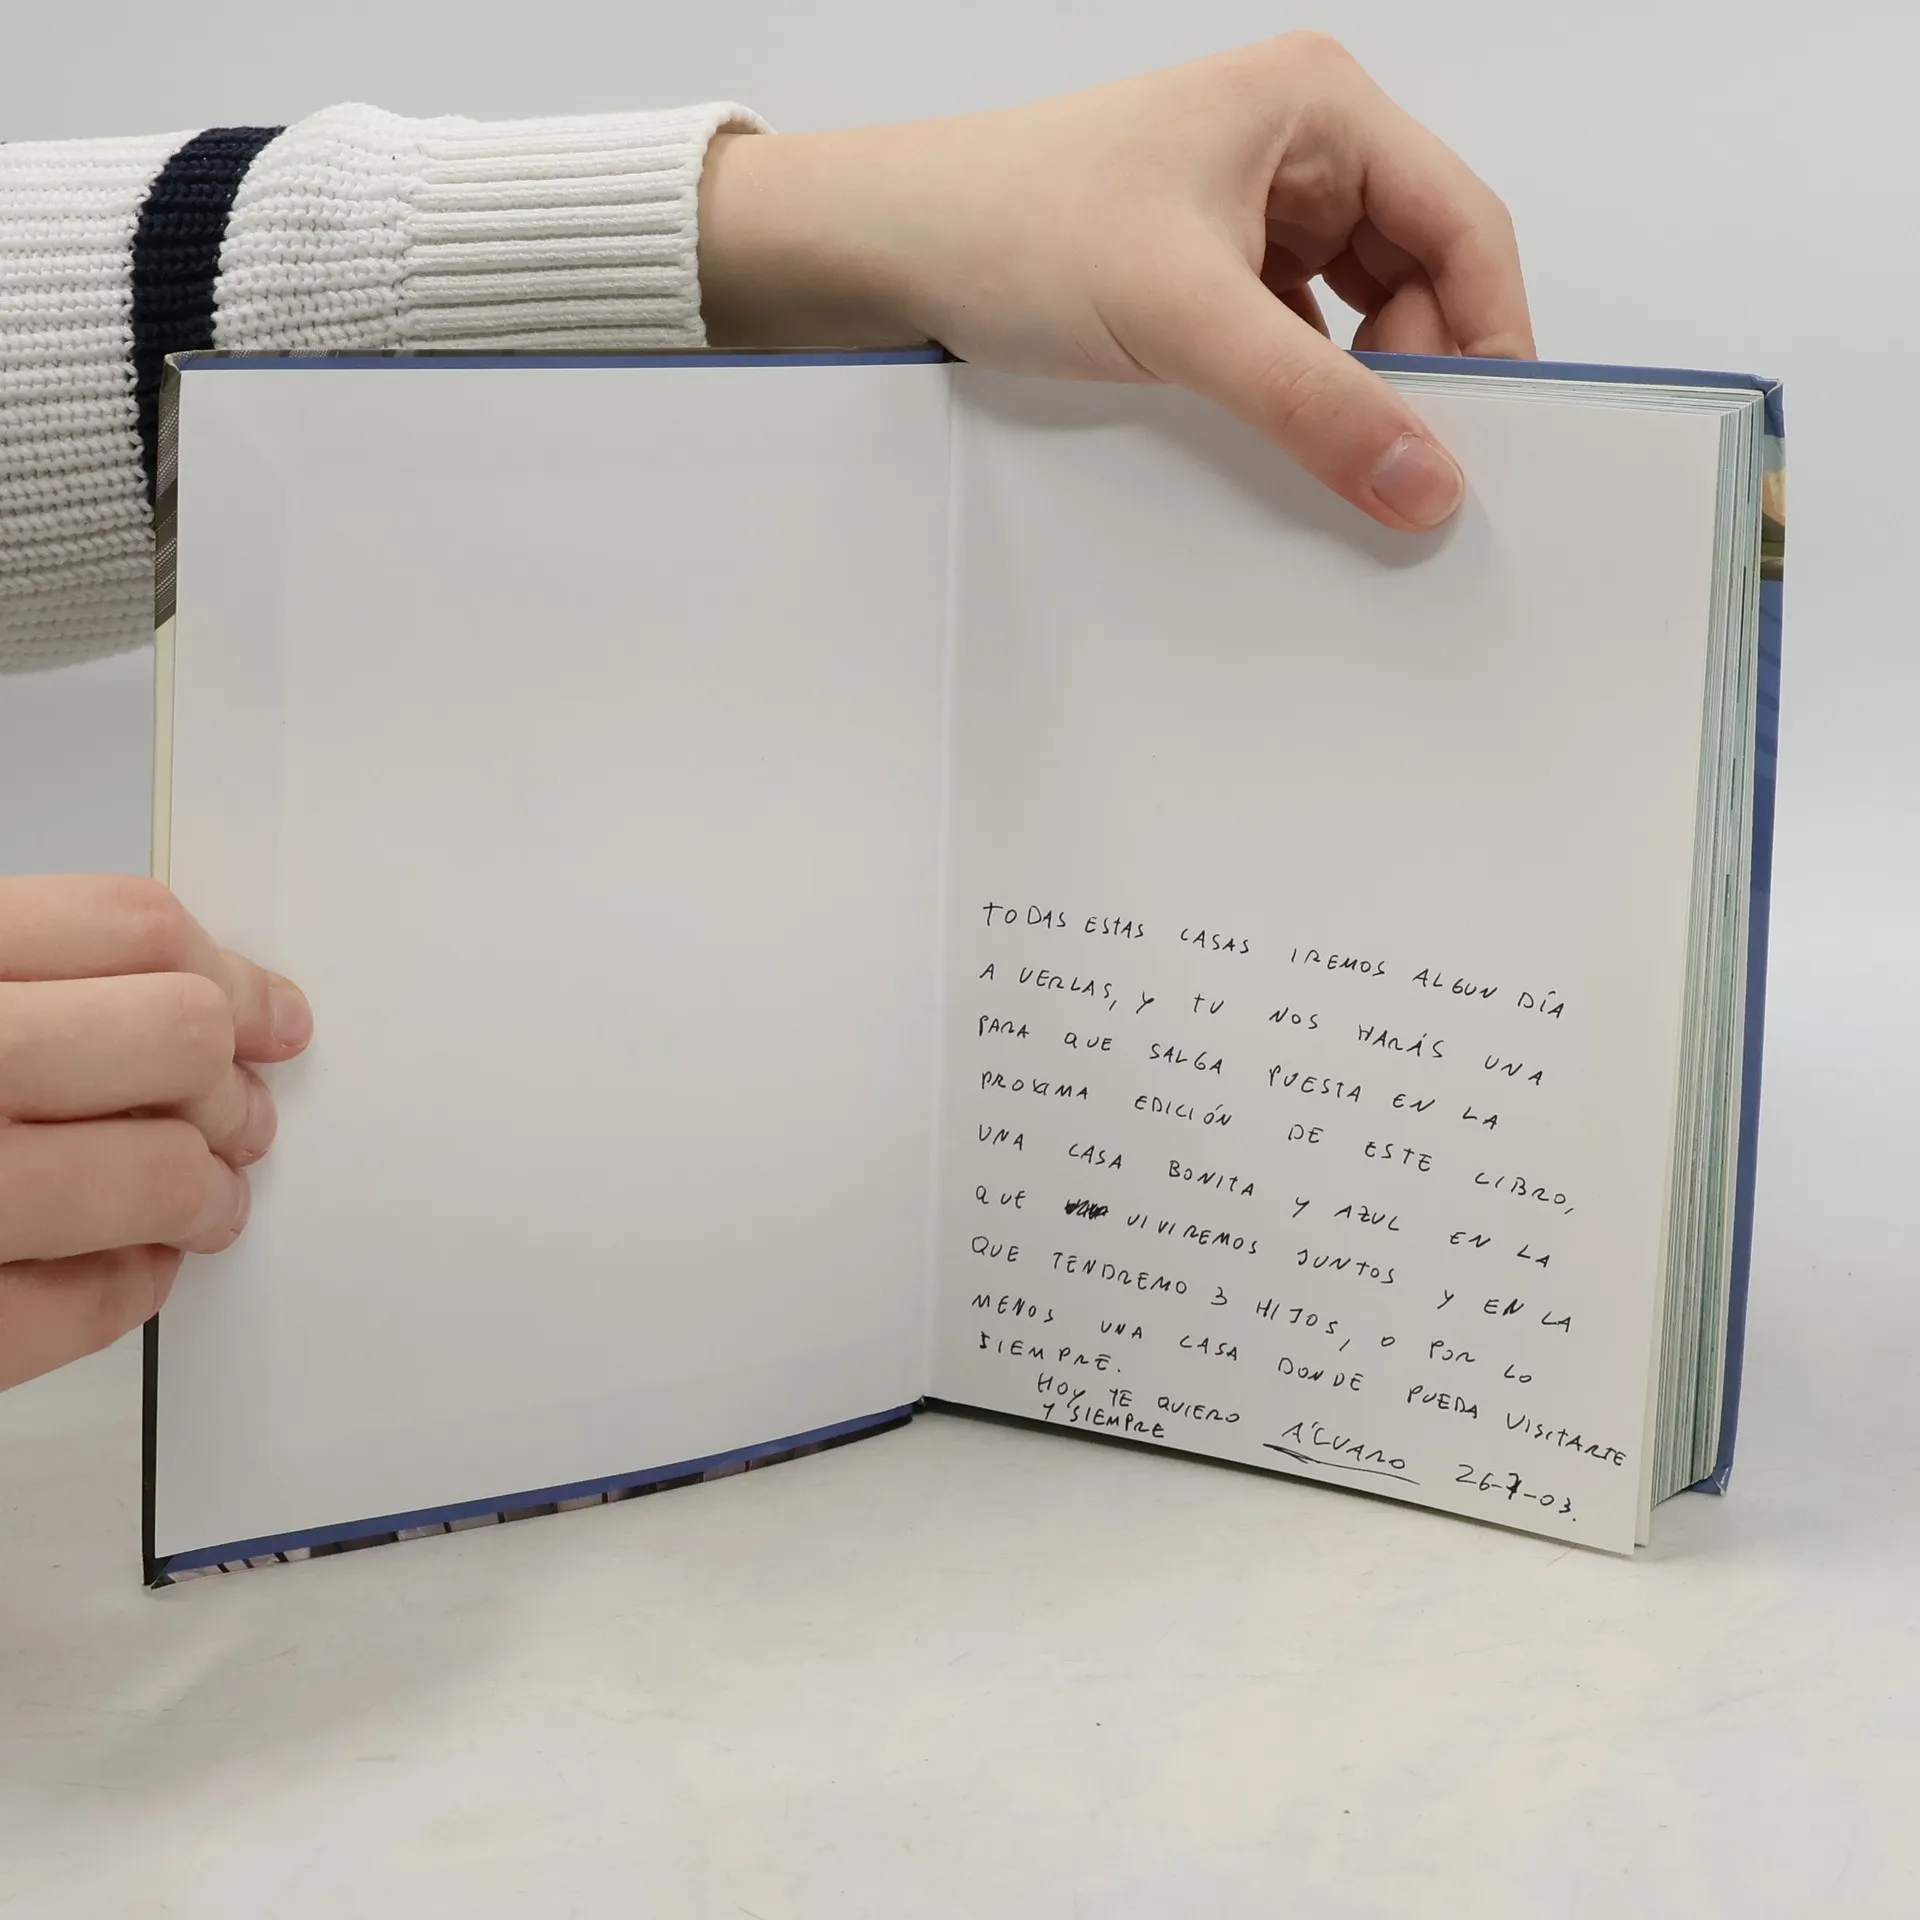 TODAS ESTAS CASAS IREMOS ALGUN DÍA
A VERLAS, Y TU NOS HARÁS UNA
PARA QUE SALGA PUESTA EN LA
PROXIMA EDICIÓN DE ESTE LIBRO,
UNA CASA BONITA Y AZUL EN LA
QUE VIVIREMOS JUNTOS Y EN LA
QUE TENDREMO 3 HIJOS, O POR LO
MENOS UNA CASA DONDE PUEDA VISITARTE
SIEMPRE.
HOY TE QUIERO
Y SIEMPRE
ÁLVARO 26-7-03.